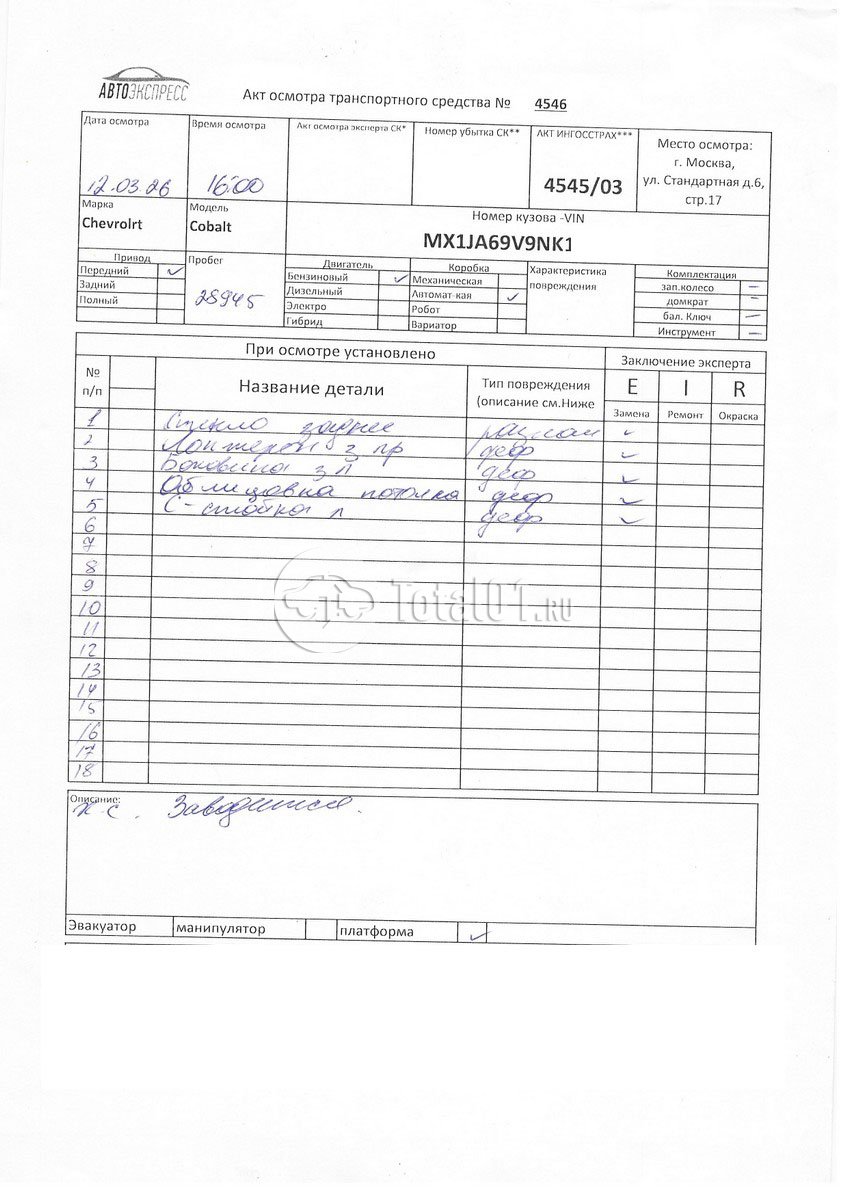 АВТОЭКСПРЕСС
Акт осмотра транспортного средства № 4546
Дата осмотра
12.03.26
Время осмотра
16:00
Акт осмотра эксперта СК*
Номер убытка СК**
АКТ ИНГОССТРАХ***
4545/03
Место осмотра:
г. Москва,
ул. Стандартная д.6,
стр.17
Марка
Chevrolrt
Модель
Cobalt
Номер кузова -VIN
MX1JA69V9NK1
Привод
Передний ✓
Задний
Полный
Пробег
28945
Двигатель
Бензиновый ✓
Дизельный
Электро
Гибрид
Коробка
Механическая
Автомат-кая ✓
Робот
Вариатор
Характеристика
повреждения
Комплектация
зап.колесо –
домкрат –
бал. Ключ –
Инструмент –
При осмотре установлено
Заключение эксперта
№
п/п
Название детали
Тип повреждения
(описание см.Ниже
E I R
Замена Ремонт Окраска
1 Стекло заднее ✓
2 Лонжерон з пр деф ✓
3 Боковина з л деф ✓
4 Облицовка потолка деф ✓
5 С-стойка л деф ✓
6
7
8
9
10
11
12
13
14
15
16
17
18
Total01.RU
Описание:
н.с. Заводится.
Эвакуатор манипулятор платформа ✓